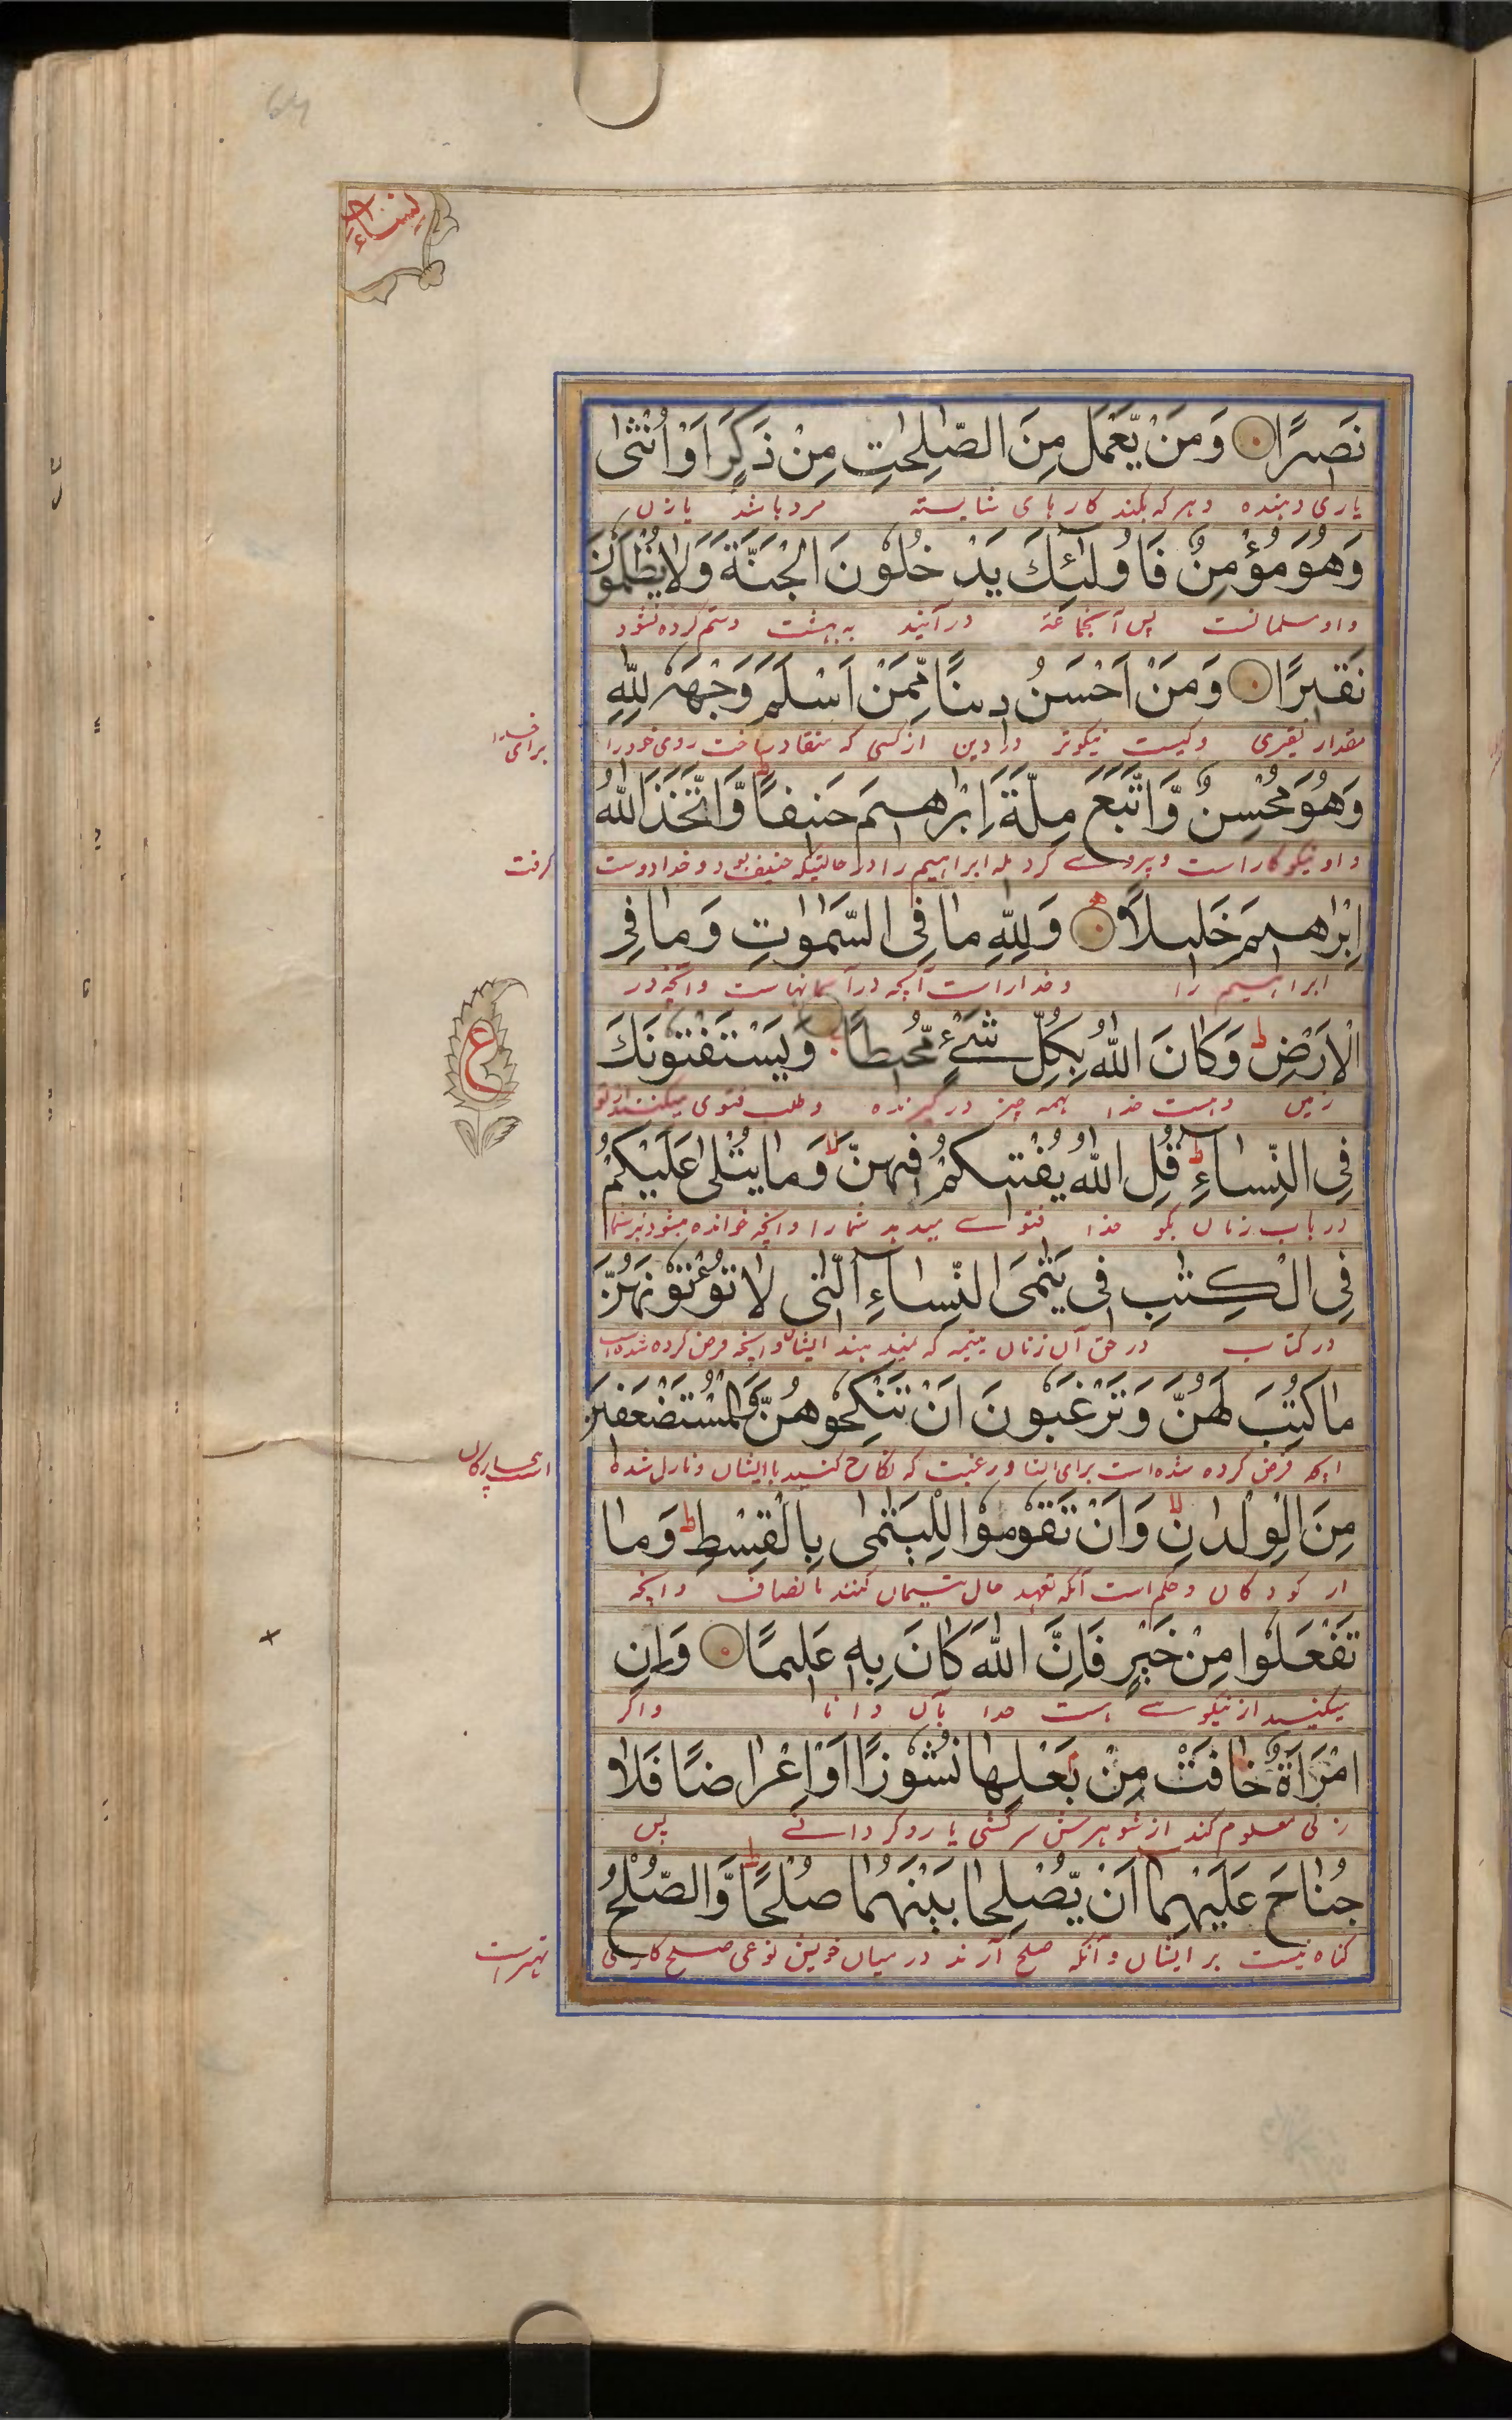 64
نساء
نَصِيرًا وَمَنْ يَّعْمَلْ مِنَ الصّٰلِحٰتِ مِنْ ذَكَرٍ اَوْ اُنْثٰى
یاری دهنده وهر که بکند کارهای شایسته مرد باشد یا زن
وَهُوَ مُؤْمِنٌ فَاُولٰٓئِكَ يَدْخُلُوْنَ الْجَنَّةَ وَلَا يُظْلَمُوْنَ
واو مسلمانست پس آنجماعة در آیند به بهشت وستم کرده نشود
نَقِيْرًا وَمَنْ اَحْسَنُ دِيْنًا مِّمَّنْ اَسْلَمَ وَجْهَهٗ لِلّٰهِ
مقدار نقیری وکیست نیکوتر در دین از کسی که منقاد ساخت روی خود را
برای خدا
وَهُوَ مُحْسِنٌ وَّاتَّبَعَ مِلَّةَ اِبْرٰهِيْمَ حَنِيْفًا ط وَّاتَّخَذَ اللّٰهُ
واو نیکوکار است وپیروے کرد مله ابراهیم را در حالتیکه حنیف بود وخدا دوست
گرفت
اِبْرٰهِيْمَ خَلِيْلًا وَلِلّٰهِ مَا فِى السَّمٰوٰتِ وَمَا فِى
ابراهیم را وخداراست آنچه در آسمانهاست وآنچه در
الْاَرْضِ ط وَكَانَ اللّٰهُ بِكُلِّ شَىْءٍ مُّحِيْطًا وَيَسْتَفْتُوْنَكَ
ع
زمین وهست خدا بهمه چیز در گیرنده وطلب فتوی میکنند از تو
فِى النِّسَآءِ ط قُلِ اللّٰهُ يُفْتِيْكُمْ فِيْهِنَّ لا وَمَا يُتْلٰى عَلَيْكُمْ
در باب زنان بگو خدا فتوے میدهد شما را وآنچه خوانده میشود بر شما
فِى الْكِتٰبِ فِىْ يَتٰمَى النِّسَآءِ الّٰتِىْ لَا تُؤْتُوْنَهُنَّ
در کتاب در حق آن زنان یتیمه که نمیدهند ایشان را آنچه فرض کرده شده است
مَا كُتِبَ لَهُنَّ وَتَرْغَبُوْنَ اَنْ تَنْكِحُوْهُنَّ وَالْمُسْتَضْعَفِيْنَ
آنچه فرض کرده شده است برای ایشان ورغبت که نکاح کنید با ایشان ونازل شده
بیچارگان
مِنَ الْوِلْدَانِ لا وَاَنْ تَقُوْمُوْا لِلْيَتٰمٰى بِالْقِسْطِ ط وَمَا
از کودکان وحکم است آنکه تعهد حال یتیمان کنند بانصاف وآنچه
تَفْعَلُوْا مِنْ خَيْرٍ فَاِنَّ اللّٰهَ كَانَ بِهٖ عَلِيْمًا وَاِنِ
میکنید از نیکوے هست خدا بآن دانا واگر
امْرَاَةٌ خَافَتْ مِنْۢ بَعْلِهَا نُشُوْزًا اَوْ اِعْرَاضًا فَلَا
زنی معلوم کند از شوهرش سرکشی یا روگردانے پس
جُنَاحَ عَلَيْهِمَآ اَنْ يُّصْلِحَا بَيْنَهُمَا صُلْحًا ط وَّالصُّلْحُ
گناه نیست بر ایشان وآنکه صلح آرند درمیان خویش نوعی صلح کاری
بهتر است